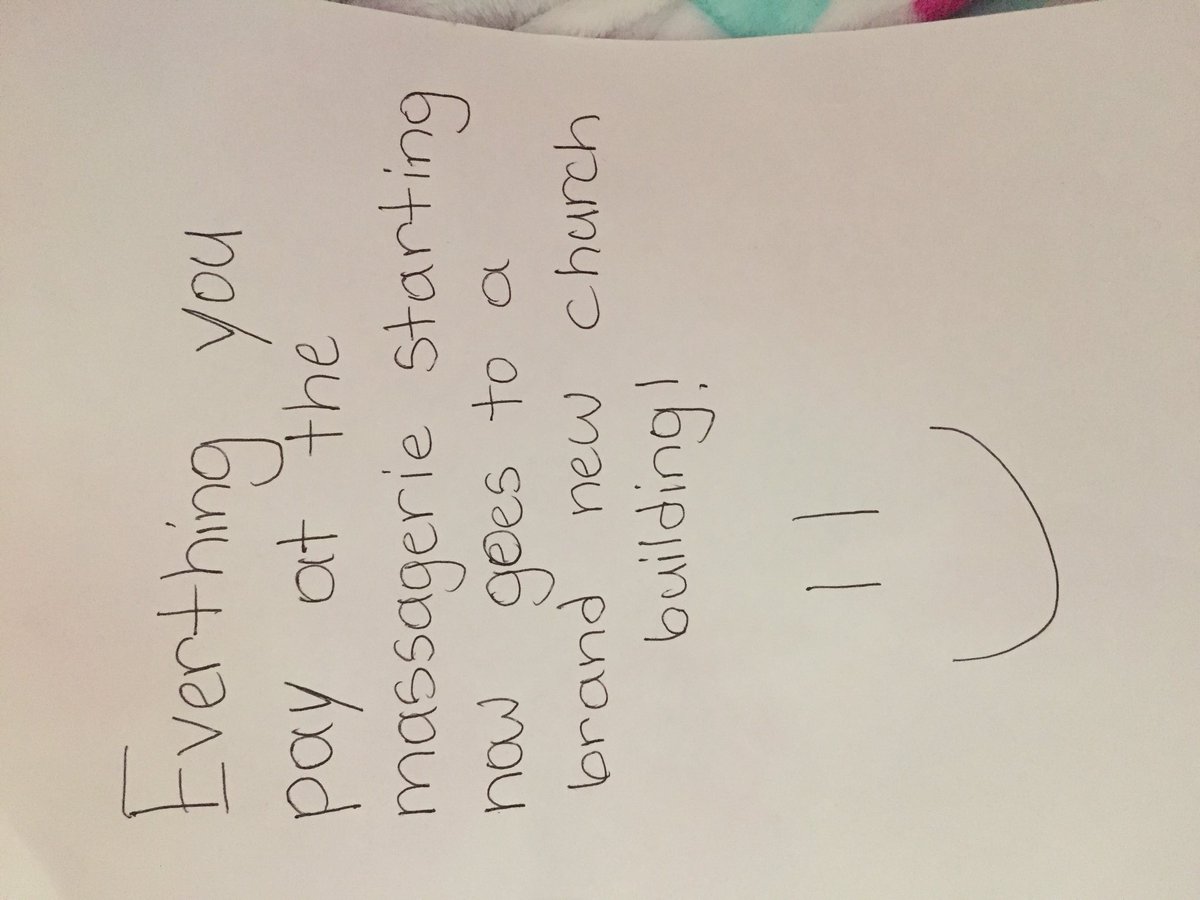 Everthing you
pay at the
massagerie starting
now goes to a
brand new church
building!